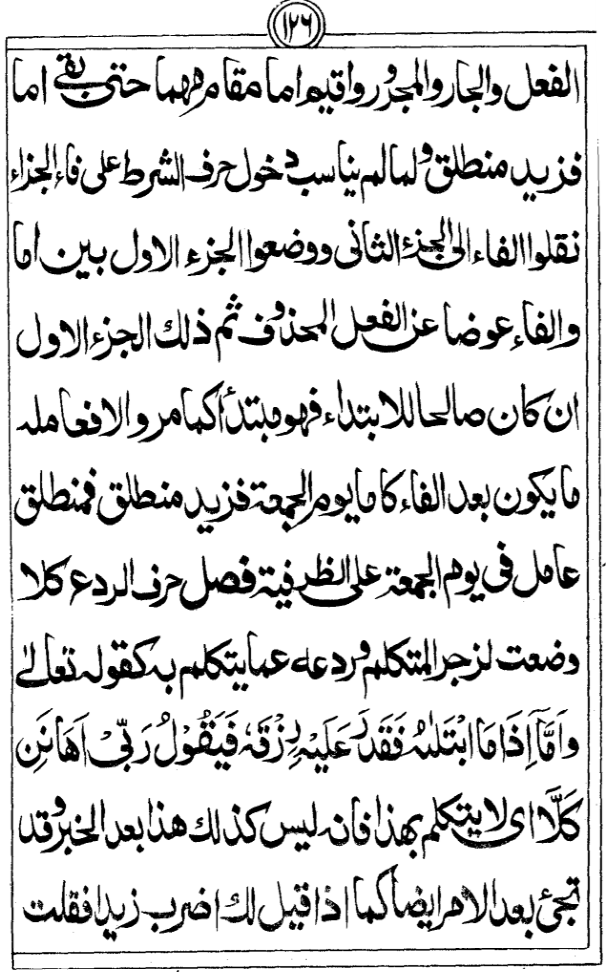 ١٢٦
الفعل والجار والمجرور واقيم اما مقامهما حتى بقي اما
فزيد منطلق ولما لم يناسب دخول حرف الشرط على فاء الجزاء
نقلوا الفاء الى الجزء الثانى ووضعوا الجزء الاول بين اما
والفاء عوضا عن الفعل المحذوف ثم ذلك الجزء الاول
ان كان صالحا للابتداء فهو مبتدأ كما مر والا فعامله
ما يكون بعد الفاء كاما يوم الجمعة فزيد منطلق فمنطلق
عامل فى يوم الجمعة على الظرفية فصل حرف الردع كلا
وضعت لزجر المتكلم وردعه عما يتكلم به كقوله تعالى
وَاَمَّا اِذَا مَا ابْتَلٰىهُ فَقَدَرَ عَلَيْهِ رِزْقَهٗ فَيَقُوْلُ رَبِّىْ اَهَانَنِ
كَلَّا اى لا يتكلم بهذا فانه ليس كذلك هذا بعد الخبر وقد
تجئ بعد الامر ايضا كما اذا قيل لك اضرب زيدا فقلت